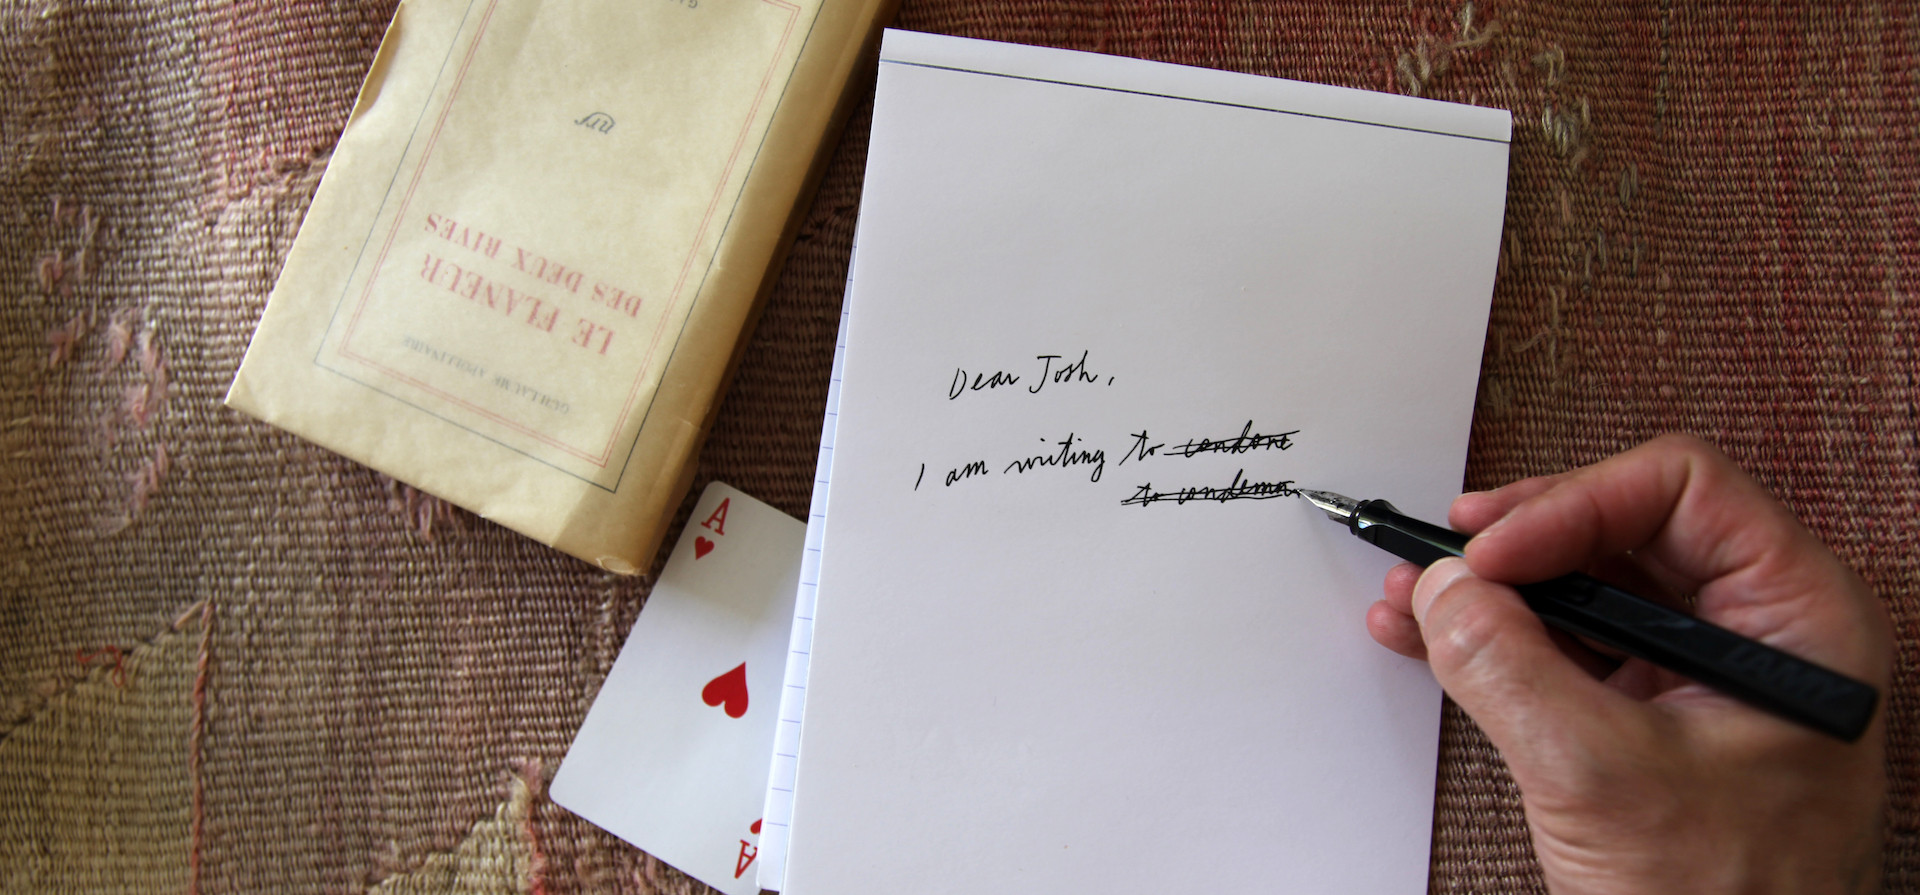 GUILLAUME APOLLINAIRE
LE FLANEUR
DES DEUX RIVES
nrf
A
A
Dear Josh,
I am writing to condone
to condemn
LAMY